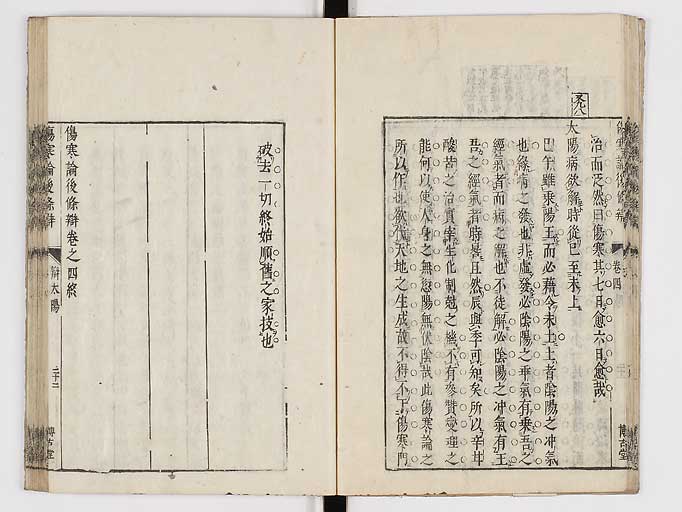 治而泛然曰傷寒其七日愈六日愈哉
太陽病欲解時從巳至未上
巳午雖乘陽王而必藉令未土土者陰陽之冲氣
也緣病之發也非虛發必陰陽之乖氣有乘吾之
經氣者而病之解也不徒解必陰陽之冲氣有王
吾之經氣者時甚且然辰與季可知矣所以辛甘
酸苦之治真宰生化制尅之機不有參贊變理之
能何以使人身之無愆陽無伏陰哉此傷寒論之
所以作也欲代天地之生成故不得不下傷寒門
破去一切終始順舊之家技也
傷寒論後條辯卷之四終
傷寒論後條辯
辯太陽
二十二
博古堂
卷四
博古堂